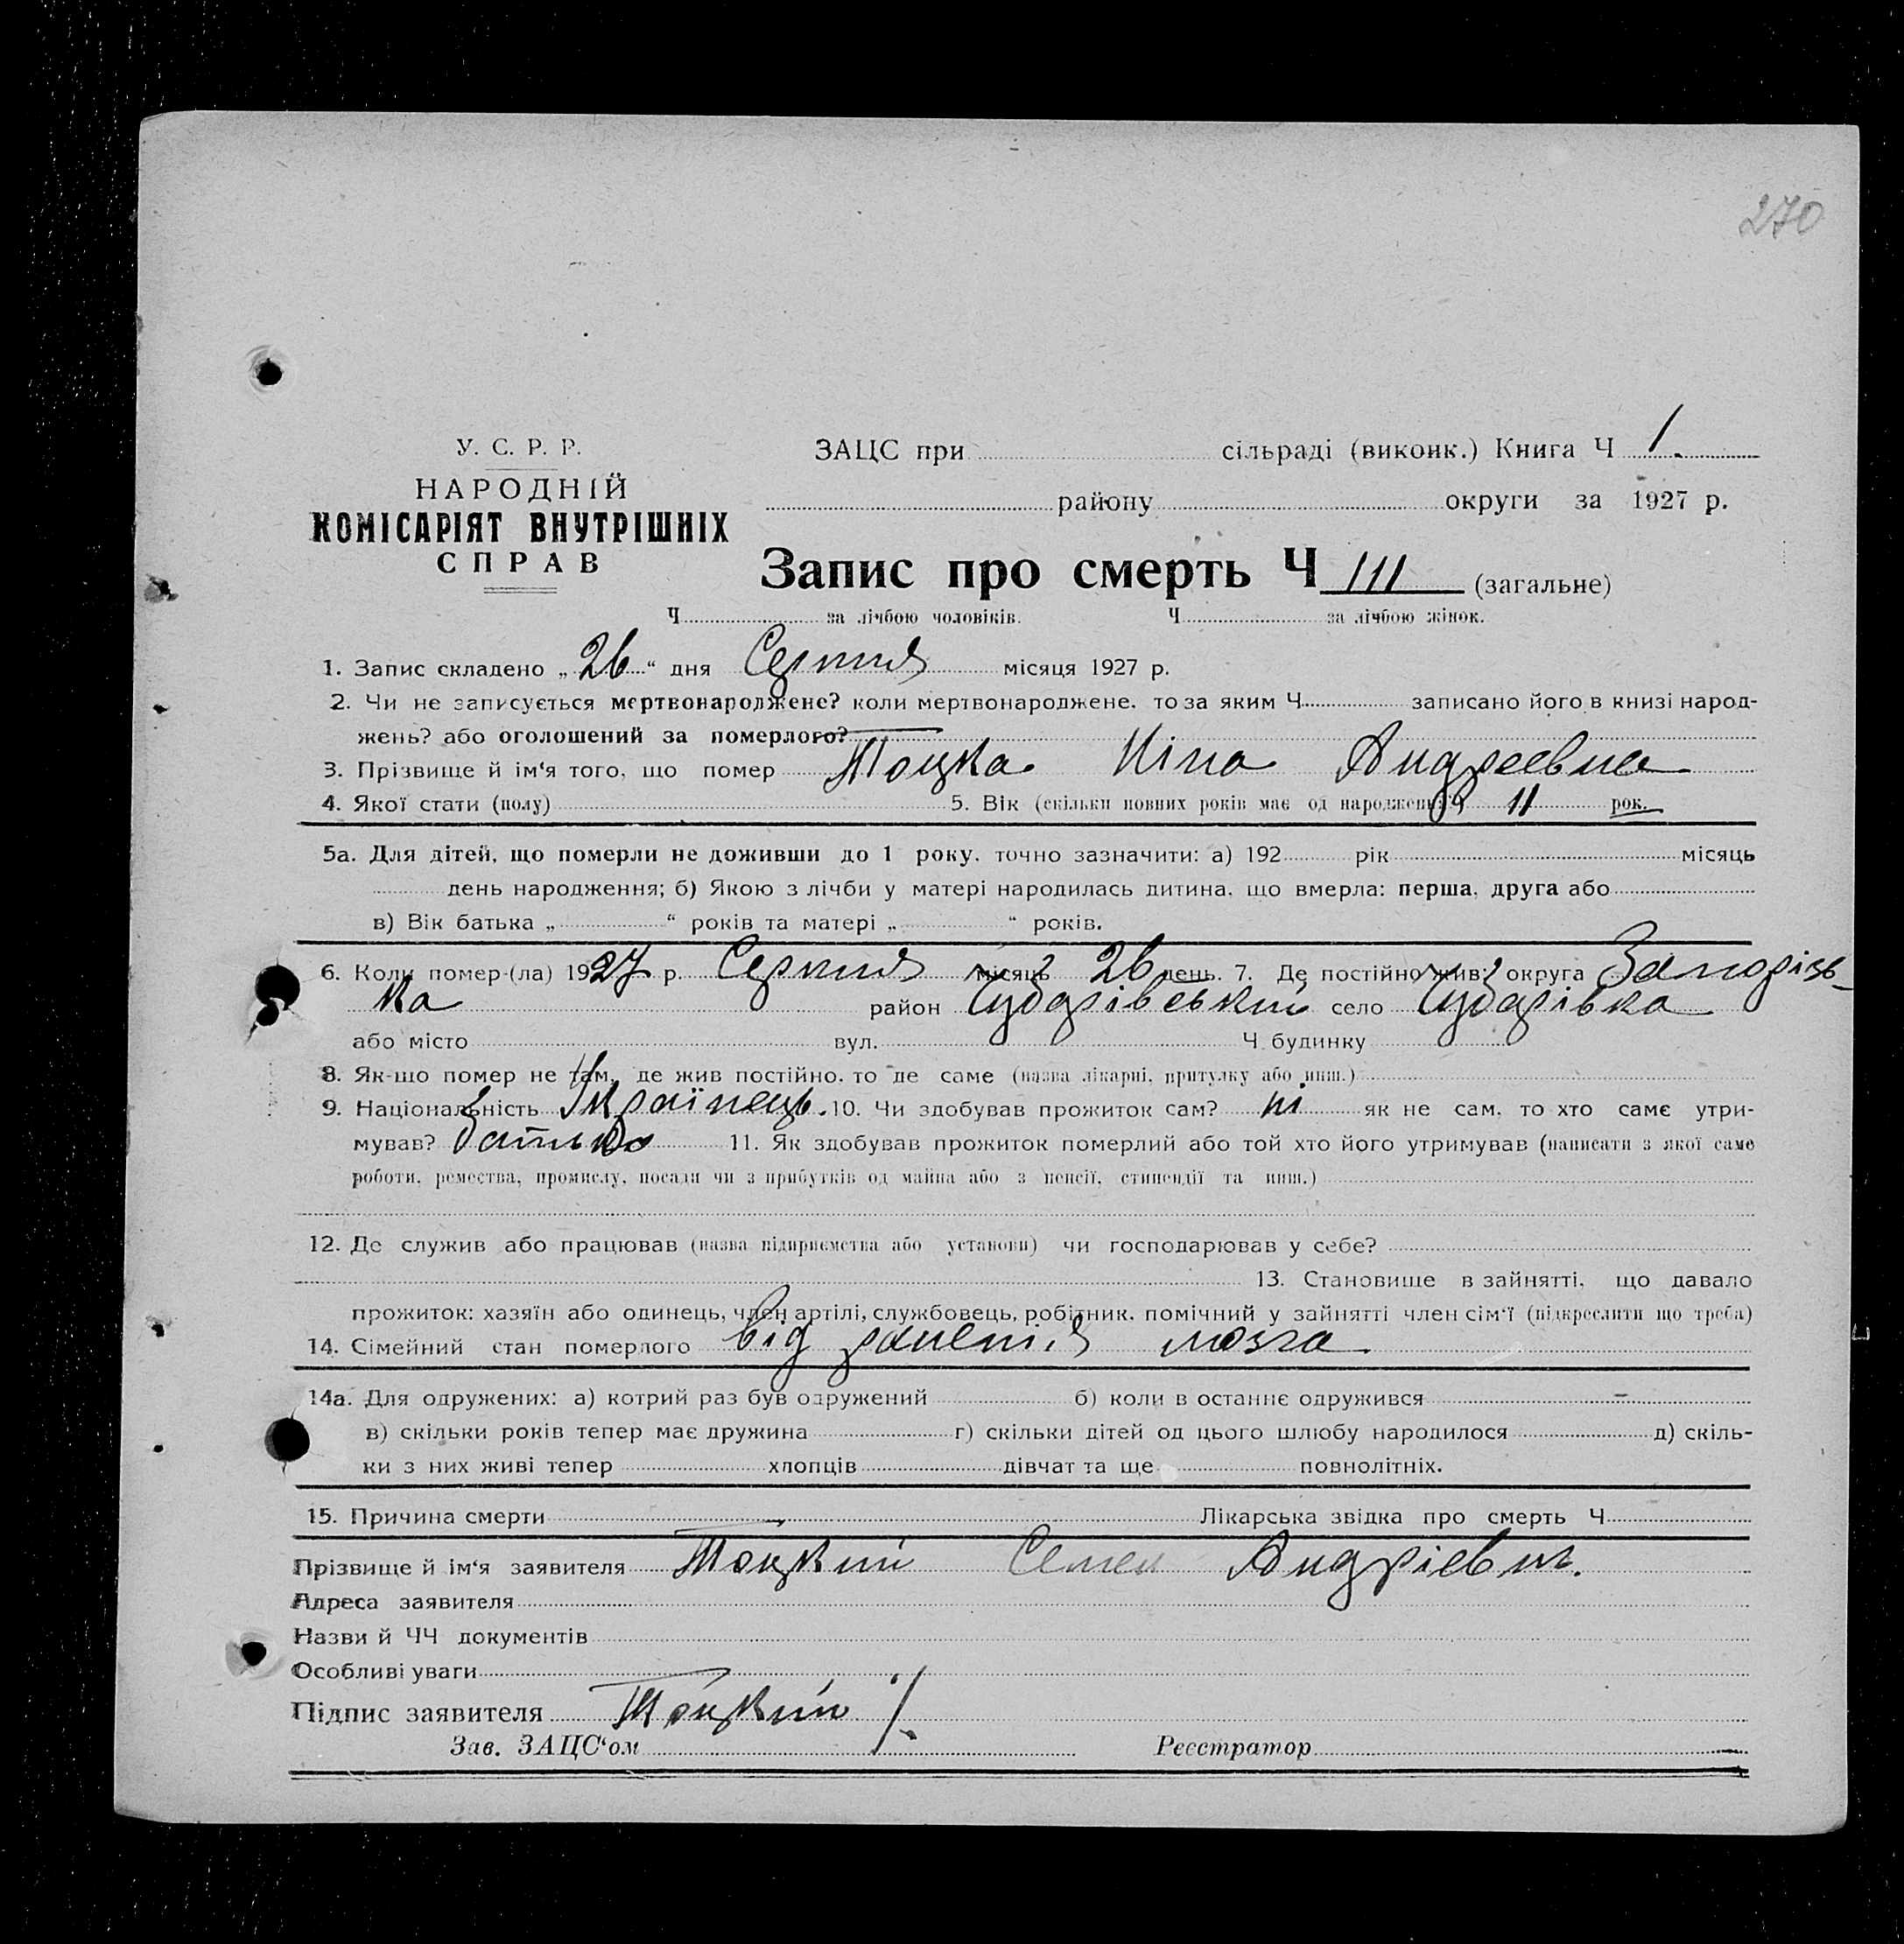 270
У. С. Р. Р.
НАРОДНІЙ
КОМІСАРІЯТ ВНУТРІШНІХ
СПРАВ
ЗАЦС при сільраді (виконк.) Книга Ч 1.
району округи за 1927 р.
Запис про смерть Ч 111 (загальне)
Ч за лічбою чоловіків. Ч за лічбою жінок.
1. Запис складено „26“ дня Серпня місяця 1927 р.
2. Чи не записується мертвонароджене? коли мертвонароджене. то за яким Ч записано його в книзі народ-
жень? або оголошений за померлого?
3. Прізвище й ім'я того, що помер Тоцка Ніна Андреевна
4. Якої стати (полу) 5. Вік (скільки повних років має од народження?) 11 рок.
5а. Для дітей, що померли не доживши до 1 року. точно зазначити: а) 192 рік місяць
день народження; б) Якою з лічби у матері народилась дитина. що вмерла: перша, друга або
в) Вік батька „ “ років та матері „ “ років.
6. Коли помер-(ла) 1927 р. Серпня місяць 26 день. 7. Де постійно жив? округа Запорізь-
ка район Цубарівський село Цубарівка
або місто вул. Ч будинку
8. Як-що помер не там, де жив постійно. то де саме (назва лікарні, притулку або инш.)
9. Національність Українець. 10. Чи здобував прожиток сам? ні як не сам, то хто саме утри-
мував? батько 11. Як здобував прожиток померлий або той хто його утримував (написати з якої саме
роботи, ремества, промислу, посади чи з прибутків од майна або з пенсії, стипендії та инш.)
12. Де служив або працював (назва підприємства або установи) чи господарював у себе?
13. Становище в зайнятті, що давало
прожиток: хазяїн або одинець, член артілі, службовець, робітник. помічний у зайнятті член сім'ї (підкреслити що треба)
14. Сімейний стан померлого від мозга
14а. Для одружених: а) котрий раз був одружений б) коли в останнє одружився
в) скільки років тепер має дружина г) скільки дітей од цього шлюбу народилося д) скіль-
ки з них живі тепер хлопців дівчат та ще повнолітніх.
15. Причина смерти Лікарська звідка про смерть Ч
Прізвище й ім'я заявителя Тоцкий Семен Андріевич.
Адреса заявителя
Назви й ЧЧ документів
Особливі уваги
Підпис заявителя Тоцкий
Зав. ЗАЦС'ом Реєстратор